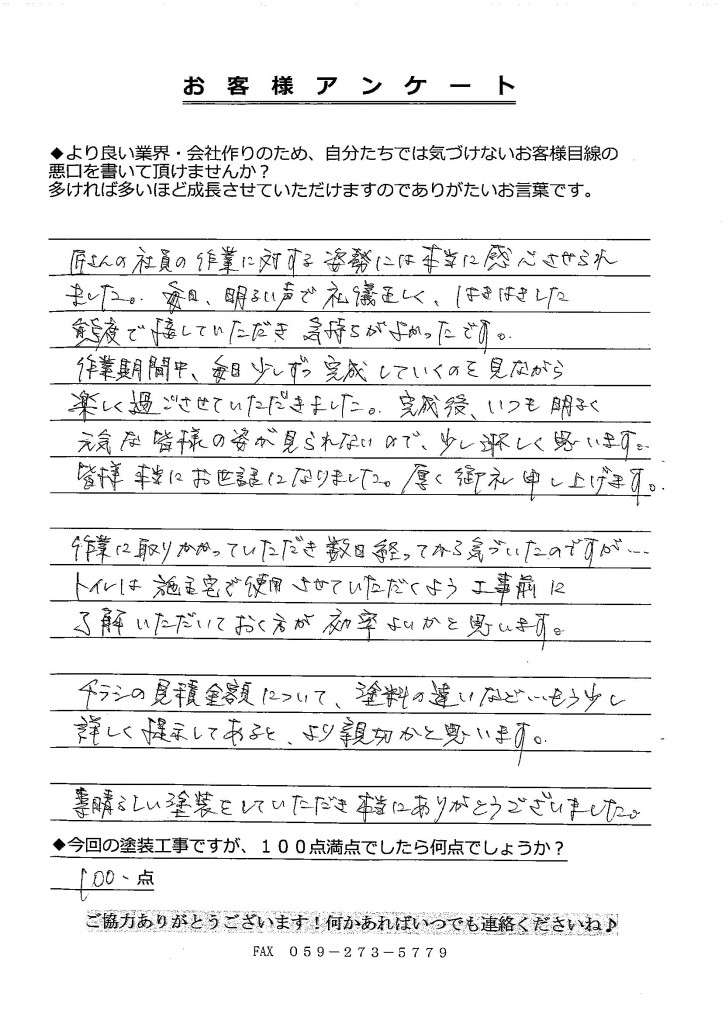 お客様アンケート
◆より良い業界・会社作りのため、自分たちでは気づけないお客様目線の
悪口を書いて頂けませんか？
多ければ多いほど成長させていただけますのでありがたいお言葉です。
匠さんの社員の作業に対する姿勢には本当に感心させられ
ました。毎日、明るい声で礼儀正しく、はきはきした
態度で接していただき気持ちがよかったです。
作業期間中、毎日少しずつ完成していくのを見ながら
楽しく過ごさせていただきました。完成後、いつも明るく
元気な皆様の姿が見られないので、少し淋しく思います。
皆様本当にお世話になりました。厚く御礼申し上げます。
作業に取りかかっていただき数日経ってから気づいたのですが…
トイレは施主宅で使用させていただくよう工事前に
了解いただいておく方が効率よいかと思います。
チラシの見積金額について、塗料の違いなど…もう少し
詳しく提示してあると、より親切かと思います。
素晴らしい塗装をしていただき本当にありがとうございました。
◆今回の塗装工事ですが、１００点満点でしたら何点でしょうか？
100点
ご協力ありがとうございます！何かあればいつでも連絡くださいね♪
FAX ０５９－２７３－５７７９